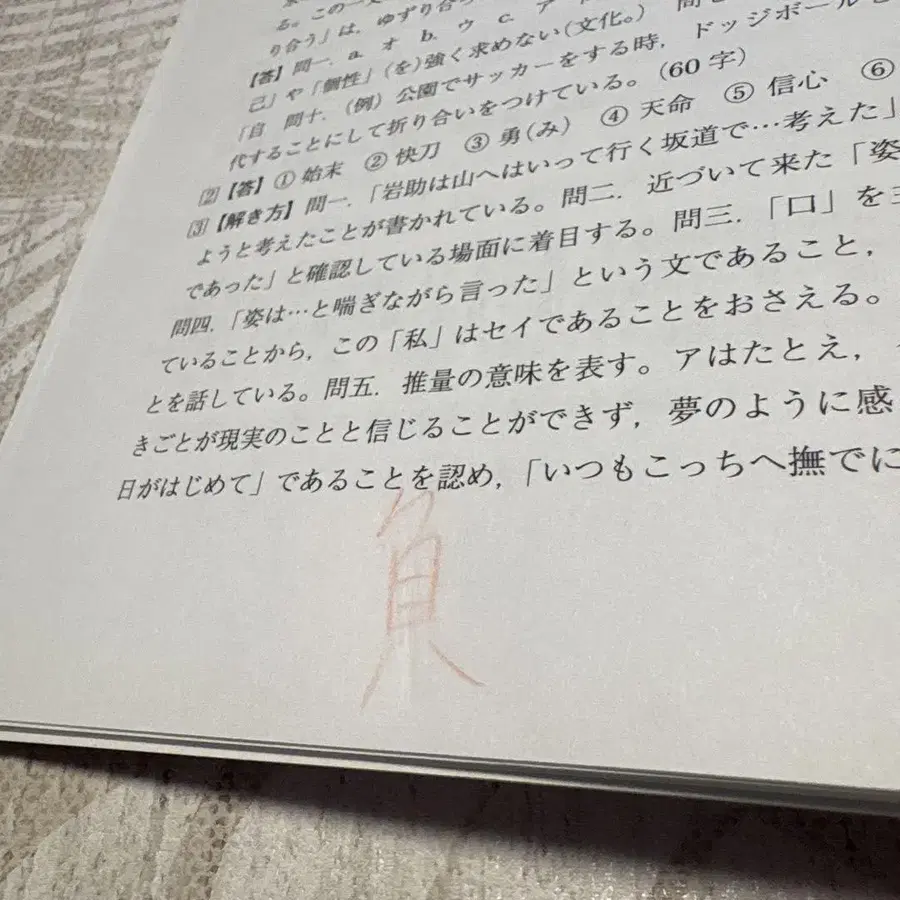 る。この一文
り合う」は，ゆずり合
【答】問一．a．オ b．ウ c．ア
己」や「個性」(を)強く求めない(文化。) 問
「自 問十．(例) 公園でサッカーをする時，ドッジボール
代することにして折り合いをつけている。(60 字)
② 【答】① 始末 ② 快刀 ③ 勇(み) ④ 天命 ⑤ 信心 ⑥
③ 【解き方】問一．「岩助は山へはいって行く坂道で…考えた」
ようと考えたことが書かれている。問二．近づいて来た「姿
であった」と確認している場面に着目する。問三．「口」を
問四．「姿は…と喘ぎながら言った」という文であること，
ていることから，この「私」はセイであることをおさえる。
とを話している。問五．推量の意味を表す。アはたとえ，
きごとが現実のことと信じることができず，夢のように感
日がはじめて」であることを認め，「いつもこっちへ撫でに
負